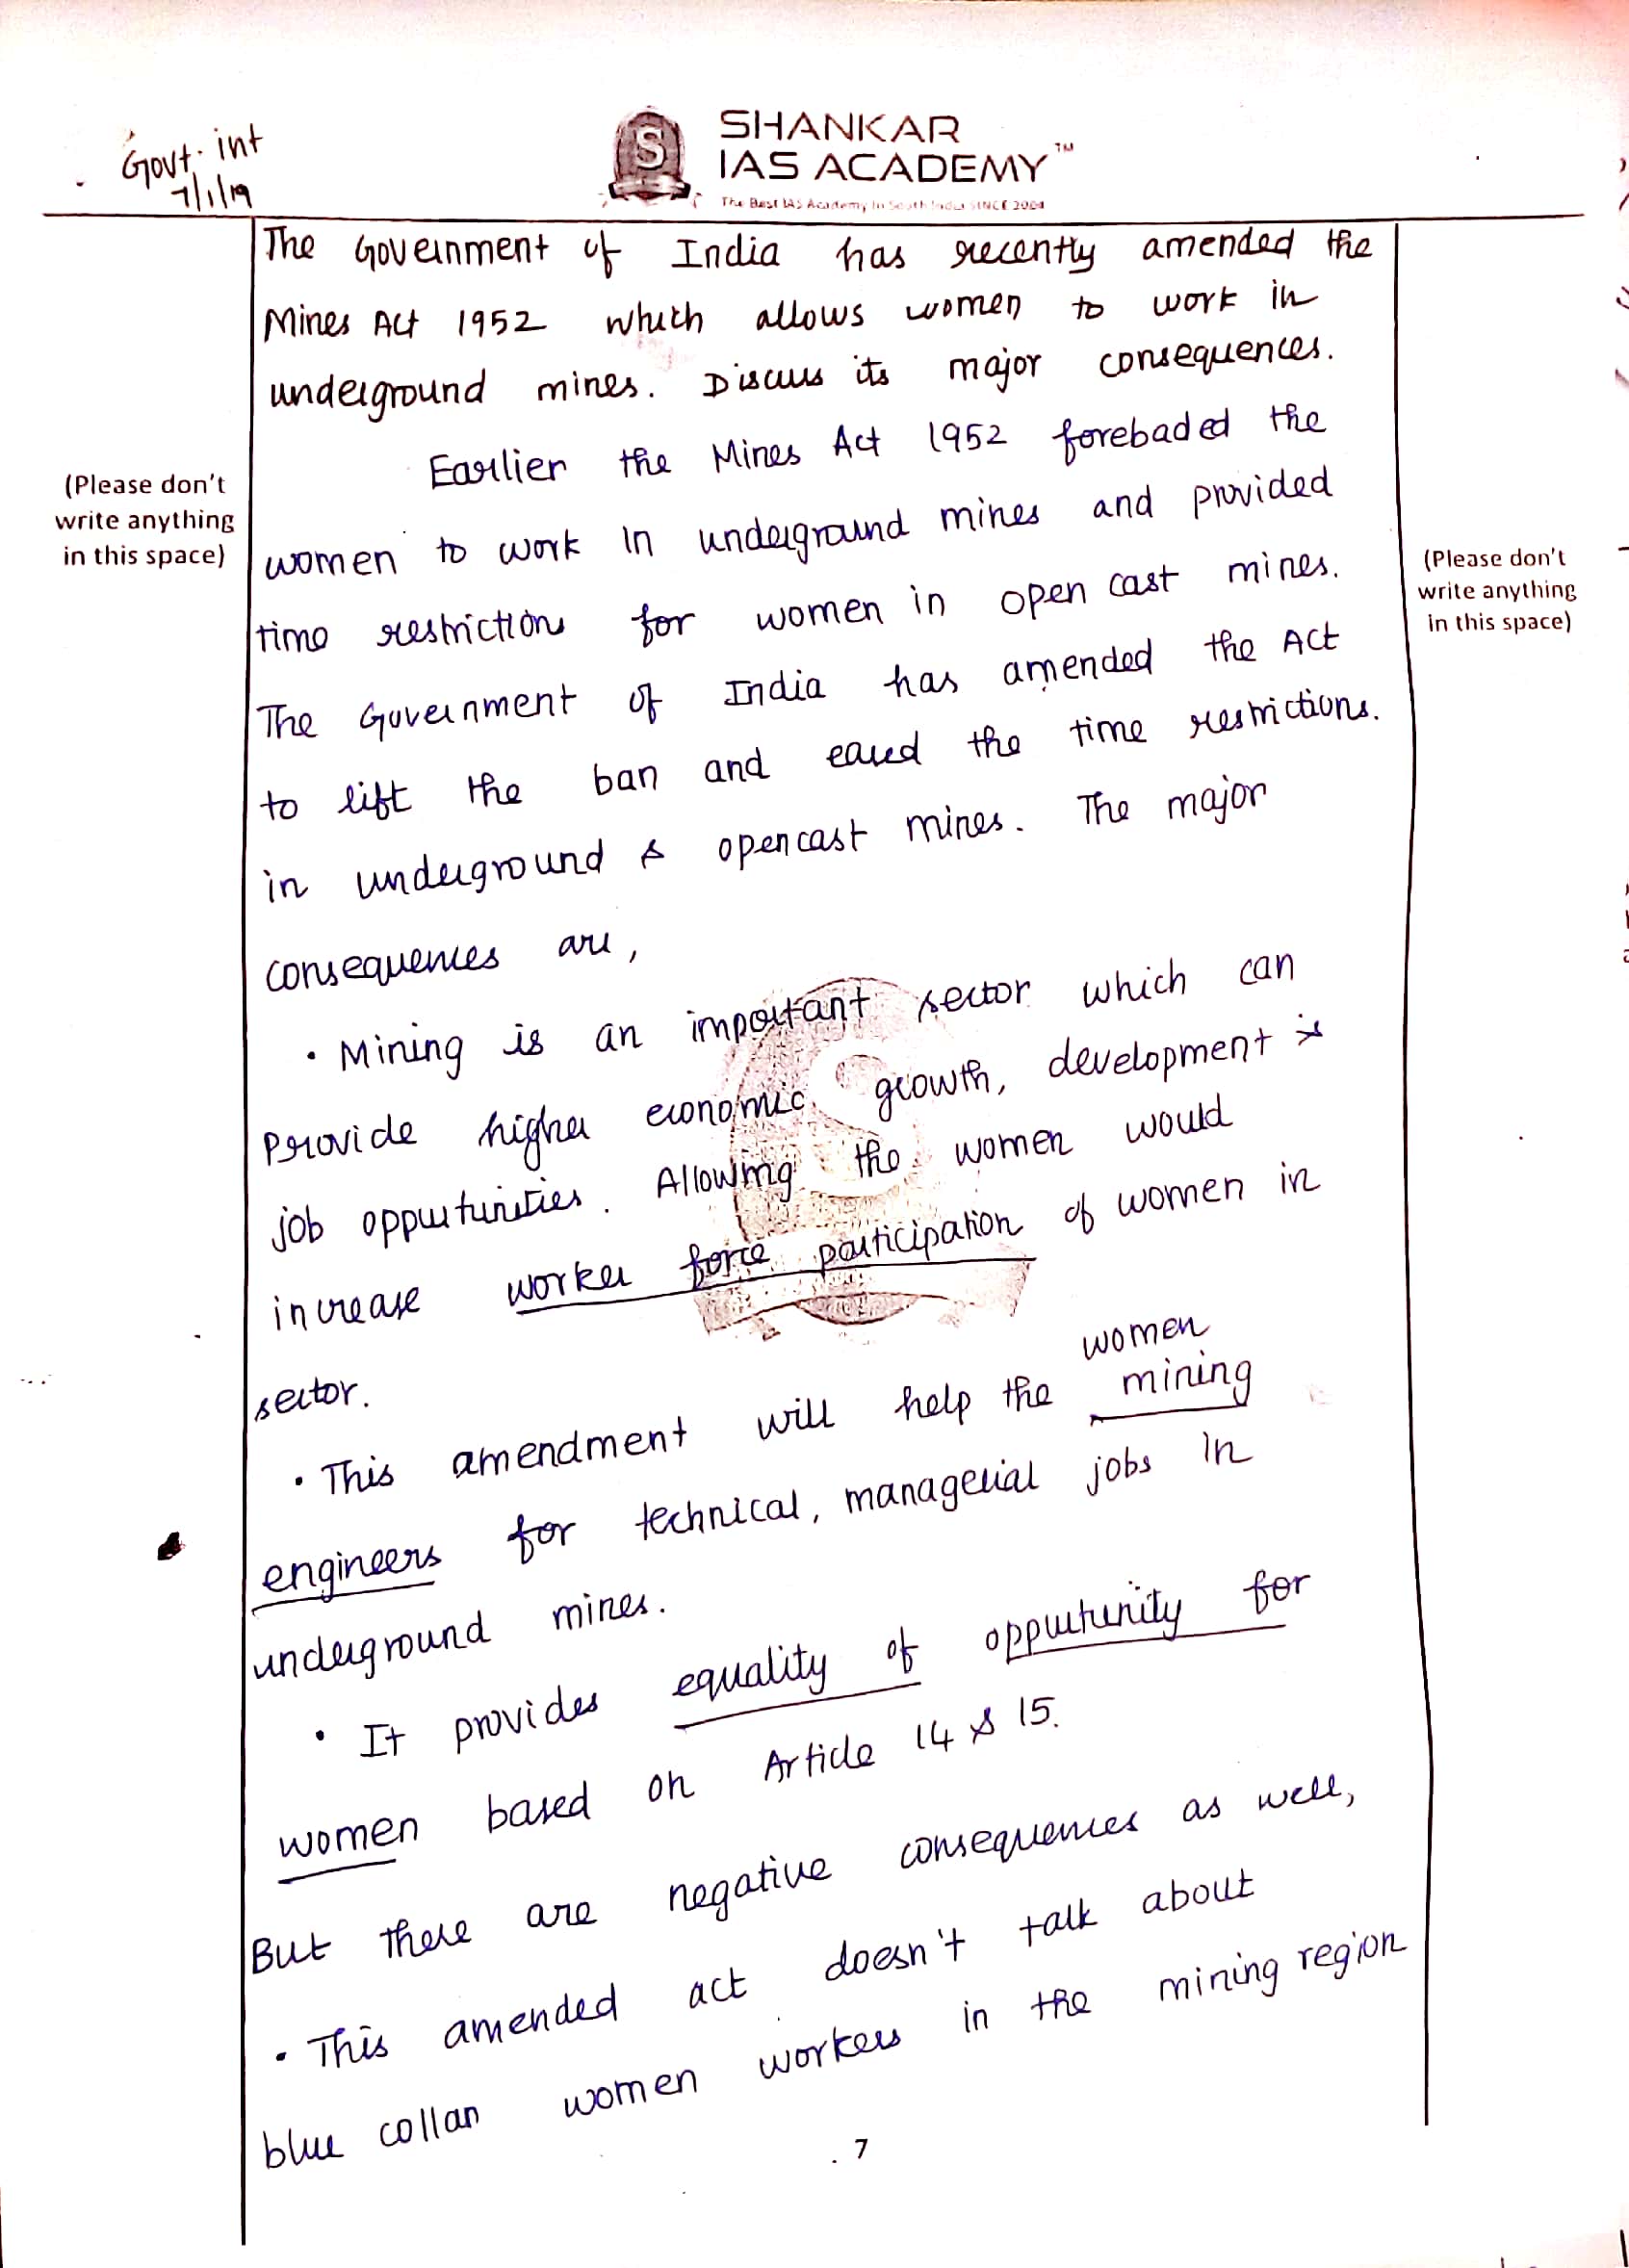 Govt. int
7/1/19
SHANKAR
IAS ACADEMY™
The Best IAS Academy In South India SINCE 2004
The Government of India has recently amended the
Mines Act 1952 which allows women to work in
underground mines. Discuss its major consequences.
Earlier the Mines Act 1952 forebaded the
(Please don't
write anything
in this space)
women to work in underground mines and provided
time restrictions for women in open cast mines.
(Please don't
write anything
in this space)
The Government of India has amended the Act
to lift the ban and eased the time restrictions.
in underground & opencast mines. The major
consequences are,
• Mining is an important sector which can
provide higher economic growth, development &
job opportunities. Allowing the women would
increase worker force participation of women in
sector.
women
• This amendment will help the mining
engineers for technical, managerial jobs in
underground mines.
• It provides equality of opportunity for
women based on Article 14 & 15.
But there are negative consequences as well,
• This amended act doesn't talk about
blue collar women workers in the mining region
7